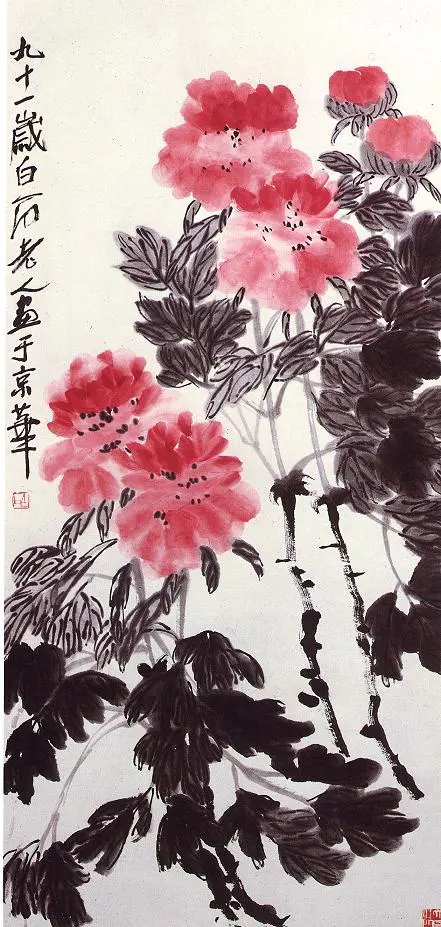 九十一歲白石老人畫于京華